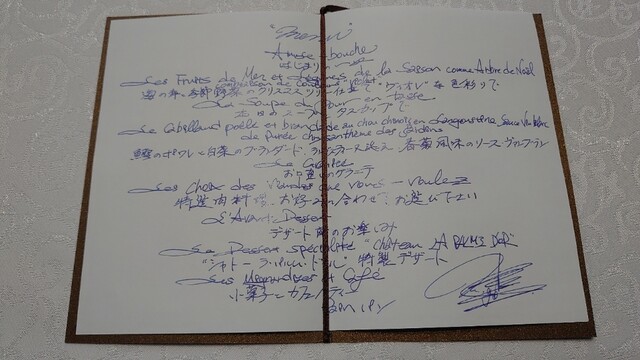 "Menu"
Amuse-bouche
はじまりの一皿
Les Fruits de Mer et Légumes de la Saison comme Arbre de Noël
海の幸、季節野菜のクリスマスツリー仕立て "ヴィオレ" な色彩りで
La Soupe du Jour en tasse
本日のスープ タスカップで
Le Cabillaud poêlé et brandade au chou chinois en Langoustine Sauce Vin Blanc
de Purée chrysanthème des Jardins
鱈のポワレと白菜のブランダード ラングスティーヌ添え 春菊風味のソース ヴァンブラン
Le Granité
お口直しのグラニテ
Les Chefs des Viandes que vous voulez
特選肉料理 お好みに合わせて お選び下さい
L'Avant Dessert
デザート前のお楽しみ
Le Dessert spécialité "Château LA PALME D'OR"
"シャトー ラ・パルム・ドール" 特製デザート
Les Mignardises et Café
小菓子とカフェ/ティー
Pain